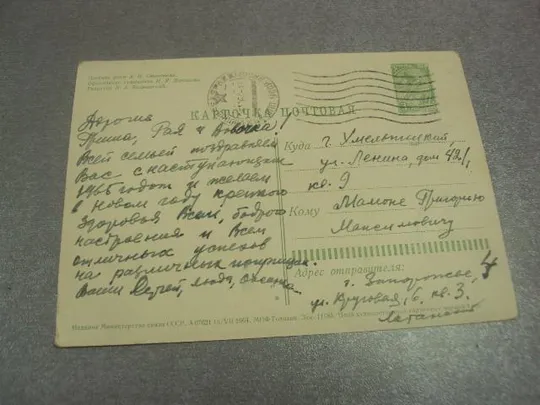 КАРТОЧКА ПОЧТОВАЯ
Дорогие
Гриша, Рая и Вовочка!
Всей семьей поздравляем
Вас с наступающим
1965 годом и желаем
в новом году крепкого
здоровья Всем, бодрого
настроения и Всем
отличных успехов
на различных поприщах.
Ваши Сергей, Люда, Оксана
Куда г. Хмельницкий,
ул. Ленина, дом
кв. 9
Кому Мамоне Григорию
Максимовичу
Адрес отправителя:
г. Запорожье,
ул. Круговая, 6, кв. 3.
Издание Министерства связи СССР.